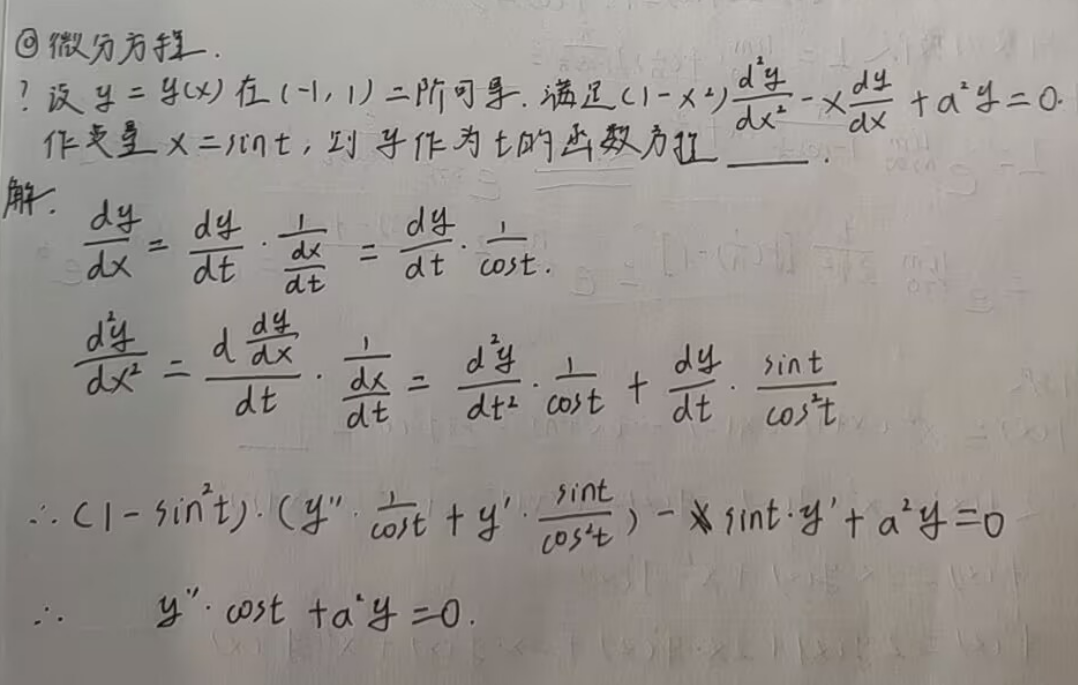 ◎微分方程.
? 设 y = y(x) 在 (-1, 1) 二阶可导. 满足 (1-x²) d²y/dx² - x dy/dx + a²y = 0.
作变量 x = sint, 则 y 作为 t 的函数方程 ____.
解. dy/dx = dy/dt · 1/(dx/dt) = dy/dt · 1/cost.
d²y/dx² = (d dy/dx)/dt · 1/(dx/dt) = d²y/dt² · 1/cost + dy/dt · sint/cos²t
∴ (1 - sin²t) · (y'' · 1/cost + y' · sint/cos²t) - sint · y' + a²y = 0
∴ y'' · cost + a²y = 0.